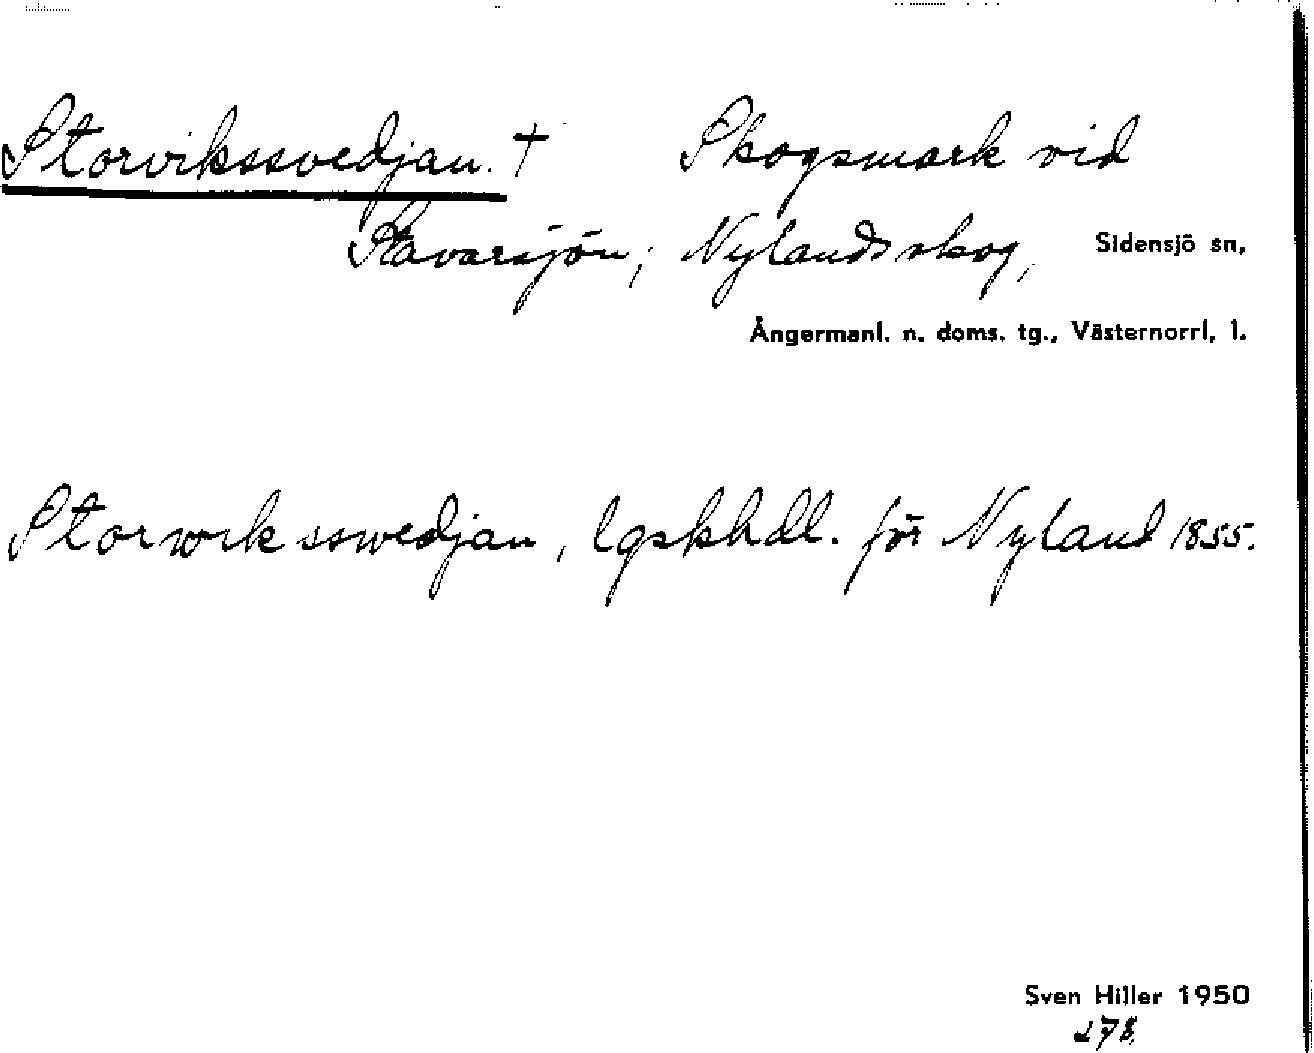 Storvikssvedjan. † Skogsmark vid
Stavarsjön, Nylandsskog, Sidensjö sn,
Ångermanl. n. doms. tg., Västernorrl. l.
Storwiksswedjan, lgskhdl. för Nyland 1855.
Sven Hiller 1950
278.